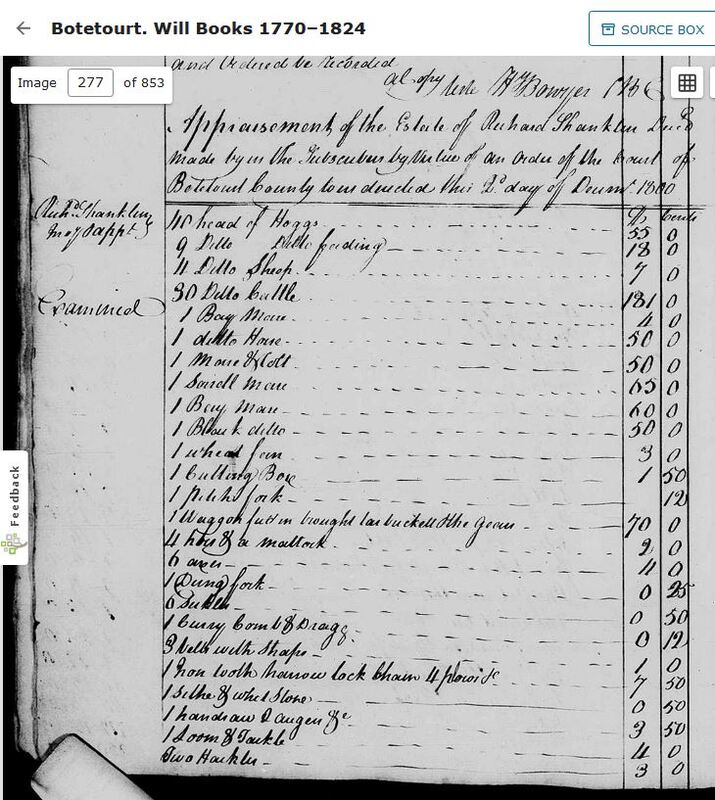 Botetourt. Will Books 1770–1824
SOURCE BOX
Image 277 of 853
and Ordered be recorded
a Copy teste H Bowyer
Appraisement of the Estate of Richard Shanklin Decd
made by us the Subscribers by Virtue of an order of the Court of
Botetourt County to us directed this 2d day of Decmr. 1800
Richd. Shanklin
Examined
$ Cents
40 head of Hoggs 55 0
9 Ditto Ditto feeding 18 0
4 Ditto Sheep 7 0
30 Ditto Cattle 181 0
1 Bay Mare 4 0
1 ditto Horse 50 0
1 Mare & Colt 50 0
1 Sorrell Mare 65 0
1 Bay Mare 60 0
1 Black ditto 50 0
1 wheat fan 3 0
1 Cutting Box 1 50
1 Pitch fork 12
1 Waggon tar buckett & the Gears 70 0
4 hoes & a mattock 2 0
6 axes 4 0
1 Dung fork 0 25
6 Sickles 0 50
1 Curry Comb & 0 12
3 with 1 0
1 Iron tooth harrow lock Chain 4 7 50
1 Sithe & whet Stone 0 50
1 handsaw 2 augers &c 3 50
1 Loom & Tackle 4 0
Two Hackles 3 0
Feedback